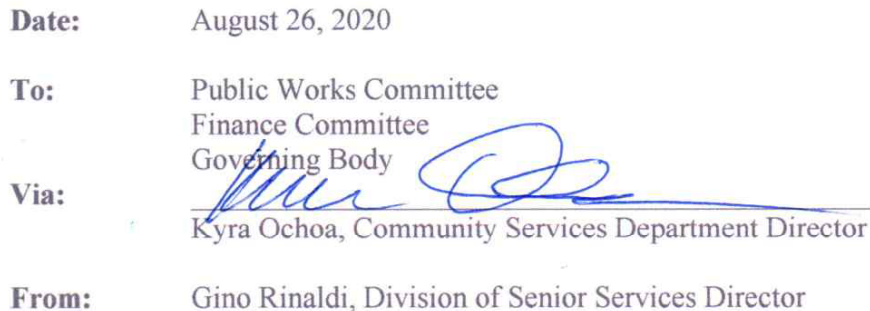 Date: August 26, 2020
To: Public Works Committee
Finance Committee
Governing Body
Via:
Kyra Ochoa, Community Services Department Director
From: Gino Rinaldi, Division of Senior Services Director